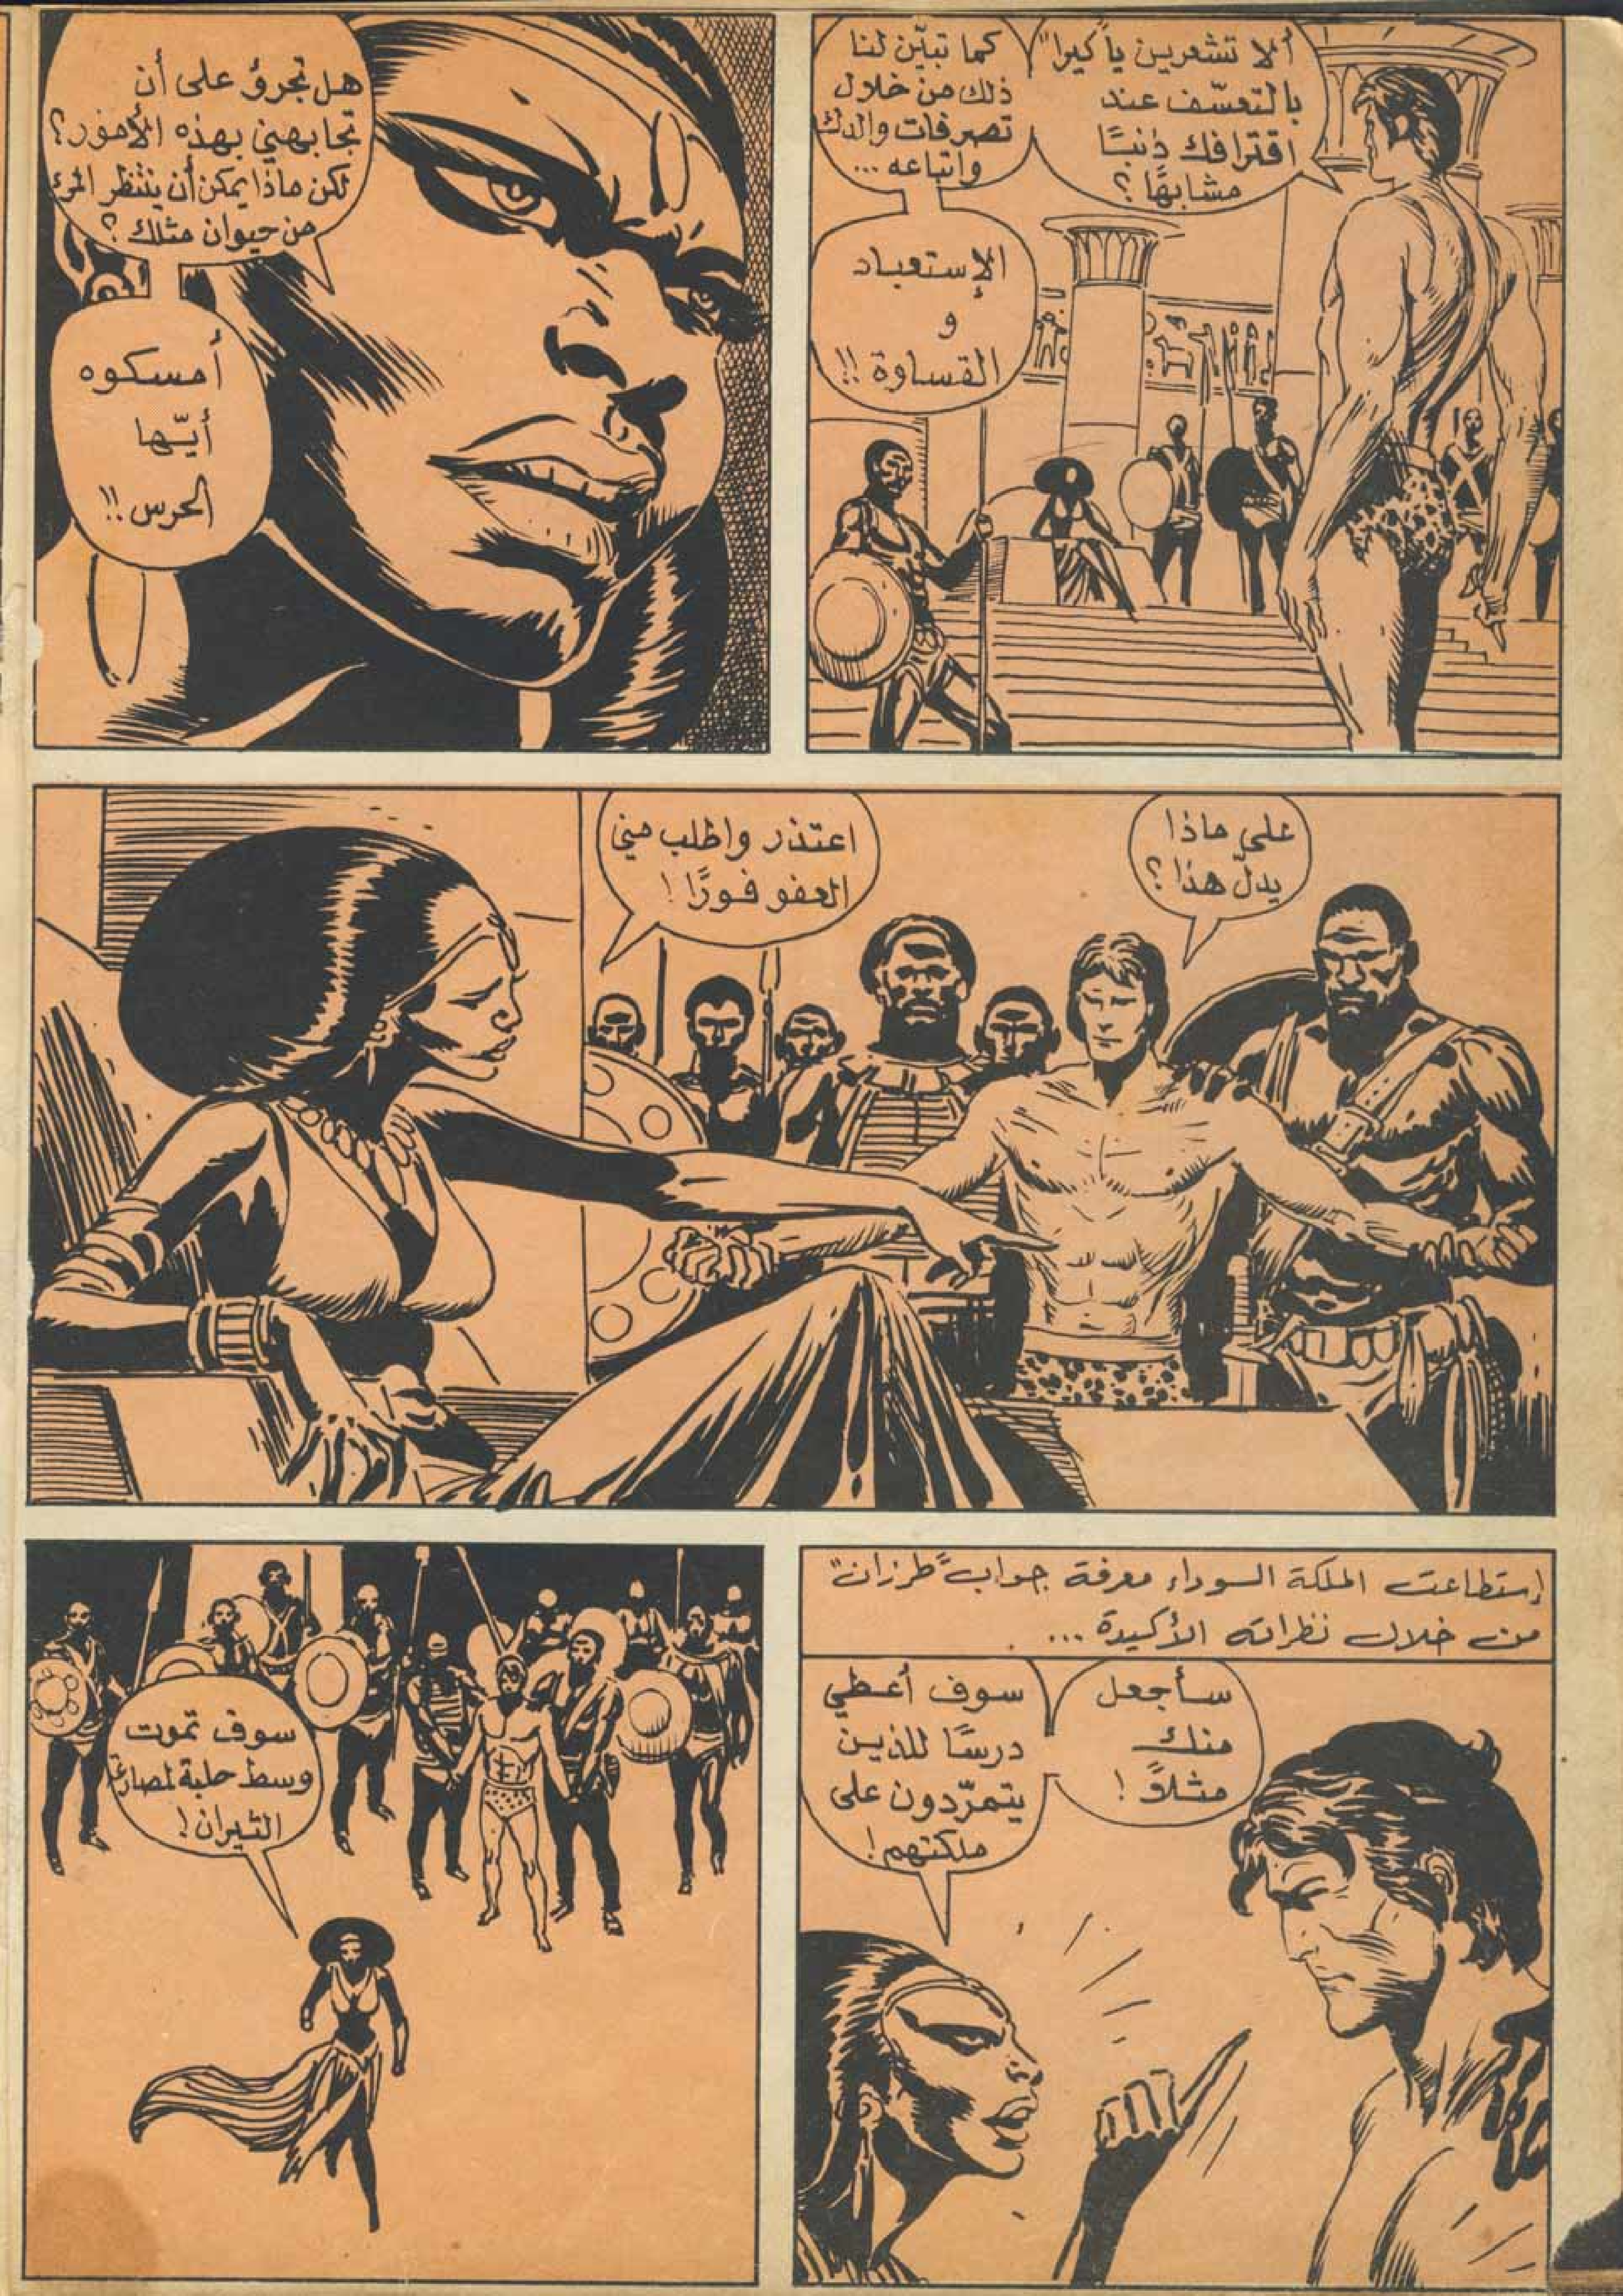 ألا تشعرين يا "كيرا"
بالتعسّف عند
اقترافك ذنبًا
مشابهًا؟
كما تبيّن لنا
ذلك من خلال
تصرفات والدك
واتباعه ...
الإستعباد
و
القساوة !!
هل تجرؤ على أن
تجابهني بهذه الأمور؟
لكن ماذا يمكن أن ينتظر المرء
من حيوان مثلك ؟
أمسكوه
أيّها
الحرس !!
على ماذا
يدلّ هذا ؟
اعتذر واطلب مني
العفو فورًا !
إستطاعت الملكة السوداء معرفة جواب "طرزان"
من خلال نظراته الأكيدة ...
سأجعل
منك
مثلاً !
سوف أعطي
درسًا للذين
يتمرّدون على
ملكتهم !
سوف تموت
وسط حلبة لمصارعة
الثيران !